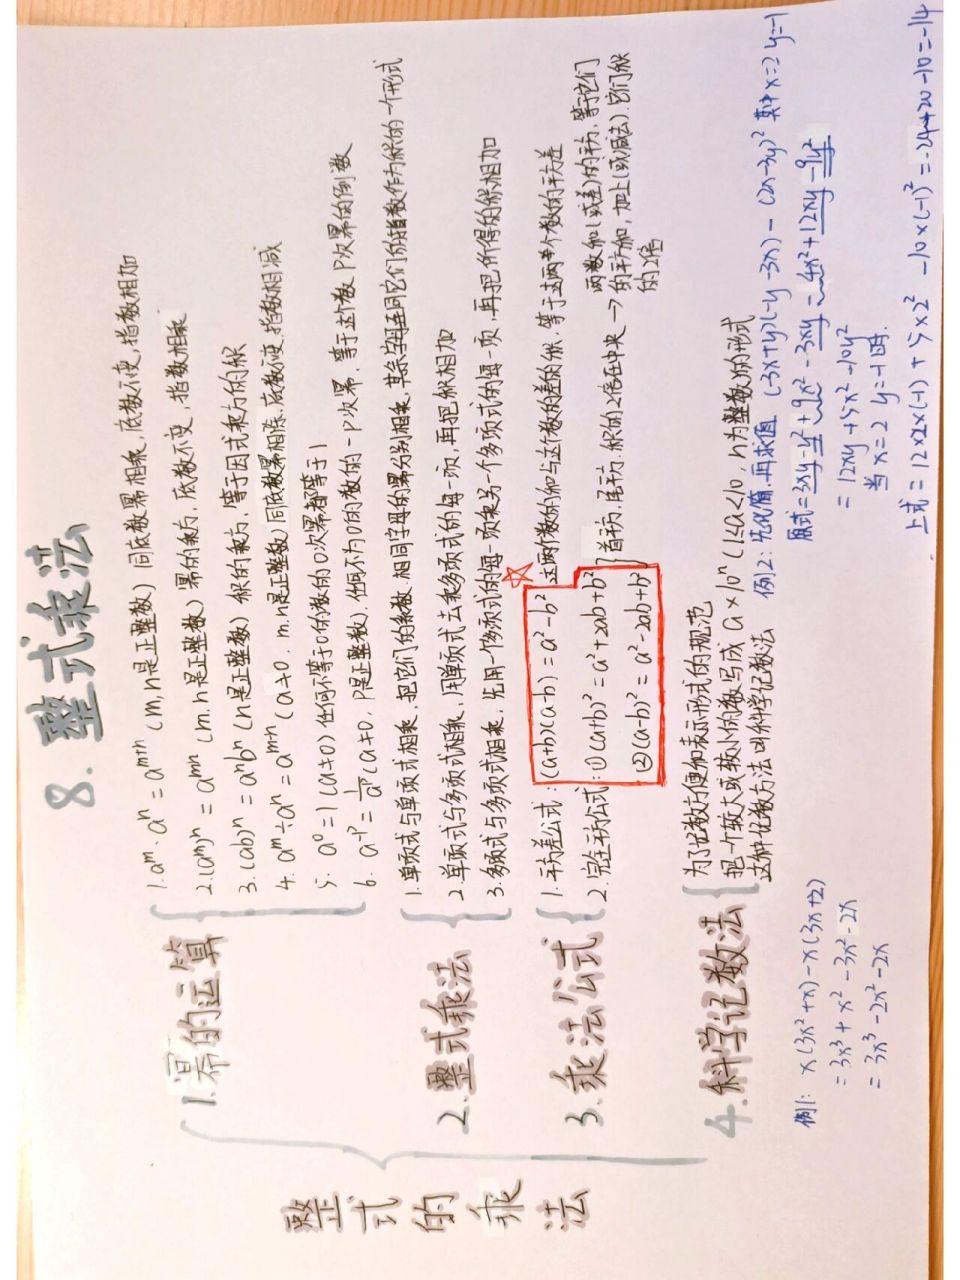 8. 整式乘法
整式的乘法
1.幂的运算
1. aᵐ·aⁿ=aᵐ⁺ⁿ (m,n是正整数) 同底数幂相乘,底数不变,指数相加
2.(aᵐ)ⁿ=aᵐⁿ (m.n是正整数) 幂的乘方,底数不变,指数相乘
3.(ab)ⁿ=aⁿbⁿ (n是正整数) 积的乘方,等于因式乘方的积
4. aᵐ÷aⁿ=aᵐ⁻ⁿ (a≠0. m.n是正整数) 同底数幂相除,底数不变,指数相减
5. a⁰=1 (a≠0) 任何不等于0的数的0次幂都等于1
6. a⁻ᵖ=1/aᵖ (a≠0, P是正整数). 任何不为0的数的-P次幂,等于这个数P次幂的倒数
2.整式乘法
1.单项式与单项式相乘,把它们的系数.相同字母的幂分别相乘,其余字母连同它们的指数作为积的一个形式
2.单项式与多项式相乘,用单项式去乘多项式的每一项,再把积相加
3.多项式与多项式相乘,先用一个多项式的每一项乘另一个多项式的每一项,再把所得的积相加
3.乘法公式
1.平方差公式:(a+b)(a-b)=a²-b² 这两个数的和与这个数的差的积.等于这两个数的平方差
2.完全平方公式:①(a+b)²=a²+2ab+b²
②(a-b)²=a²-2ab+b²
首平方,尾平方.积的2倍在中央→
两数和(或差)的平方,等于它们
的平方和,加上(或减去).它们积
的2倍
4.科学记数法
为了记数方便和表示形式的规范
把一个较大或较小的数写成a×10ⁿ(1≤a<10,n为整数)的形式
这种记数方法叫科学记数法
例1: x(3x²+x)-x(3x+2)
=3x³+x²-3x²-2x
=3x³-2x²-2x
例2:先化简,再求值 (-3x+y)(-y-3x)-(2x-3y)² 其中x=2 y=-1
原式=3xy-y²+9x²-3xy-4x²+12xy-9y²
=12xy+5x²-10y²
当x=2 y=-1时.
上式=12×2×(-1)+5×2²-10×(-1)²=-24+20-10=-14